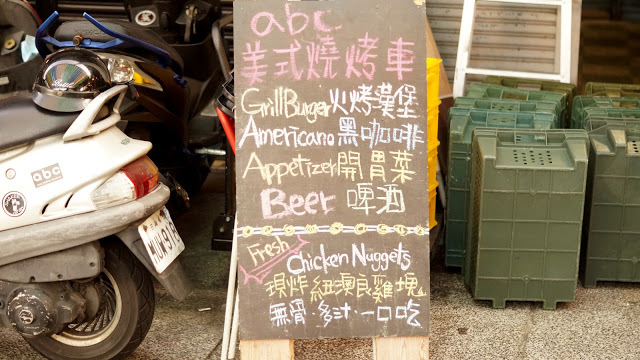 abc
美式燒烤車
Grill Burger 火烤漢堡
Americano 黑咖啡
Appetizer 開胃菜
Beer 啤酒
Fresh
Chicken Nuggets
現炸紐澳良雞塊
無骨・多汁・一口吃
abc